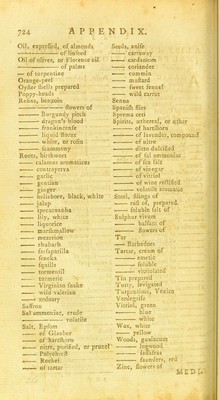 724 APPENDIX.
Oil, expressed, of almonds
—— of linseed
Oil of olives, or Florence oil
—— of palms
— of turpentine
Orange-peel
Oyster shells prepared
Poppy-heads
Resins, benzoin
—— flowers of
—— Burgundy pitch
—— dragon's blood
—— frankincense
—— liquid storax
—— white, or rosin
—— scammony
Roots, birthwort
—— calamus aromaticus
—— contrayerva
—— garlic
—— gentian
—— ginger
—— hellebore, black, white
—— jalap
—— ipecacuanha
—— lily, white
—— liquorice
—— marshmallow
—— mezerion
—— rhubarb
—— sarsaparilla
—— seneka
—— squills
—— tormentil
—— turmeric
—— Virginian snake
—— wild valerian
—— zedoary
Saffron
Sal ammoniac, crude
—— volatile
Salt, Epsom
— of Glauber
— of hartshorn
— nitre, purified, or prunel
— Polychrest
— Rochel
— of tartar
Seeds, anise
—— caraway
—— cardamom
—— coriander
—— cummin
—— mustard
—— sweet fennel
—— wild carrot
Senna
Spanish flies
Sperma ceti
Spirits, æthereal, or æther
—— of hartshorn
—— of lavender, compound
—— of nitre
—— ditto dulcified
—— of sal ammoniac
—— of sea salt
—— of vinegar
—— of vitriol
—— of wine rectified
—— volatile aromatic
Steel, filings of
—— rust of, prepared
—— soluble salt of
Sulphur vivum
—— balsam of
—— flowers of
Tar
—— Barbadoes
Tartar, cream of
—— emetic
—— soluble
—— vitriolated
Tin prepared
Tutty, levigated
Turpentine, Venice
Verdegrise
Vitriol, green
—— blue
—— white
Wax, white
—— yellow
Woods, guaiacum
—— logwood
—— sassafras
—— saunders, red
Zinc, flowers of